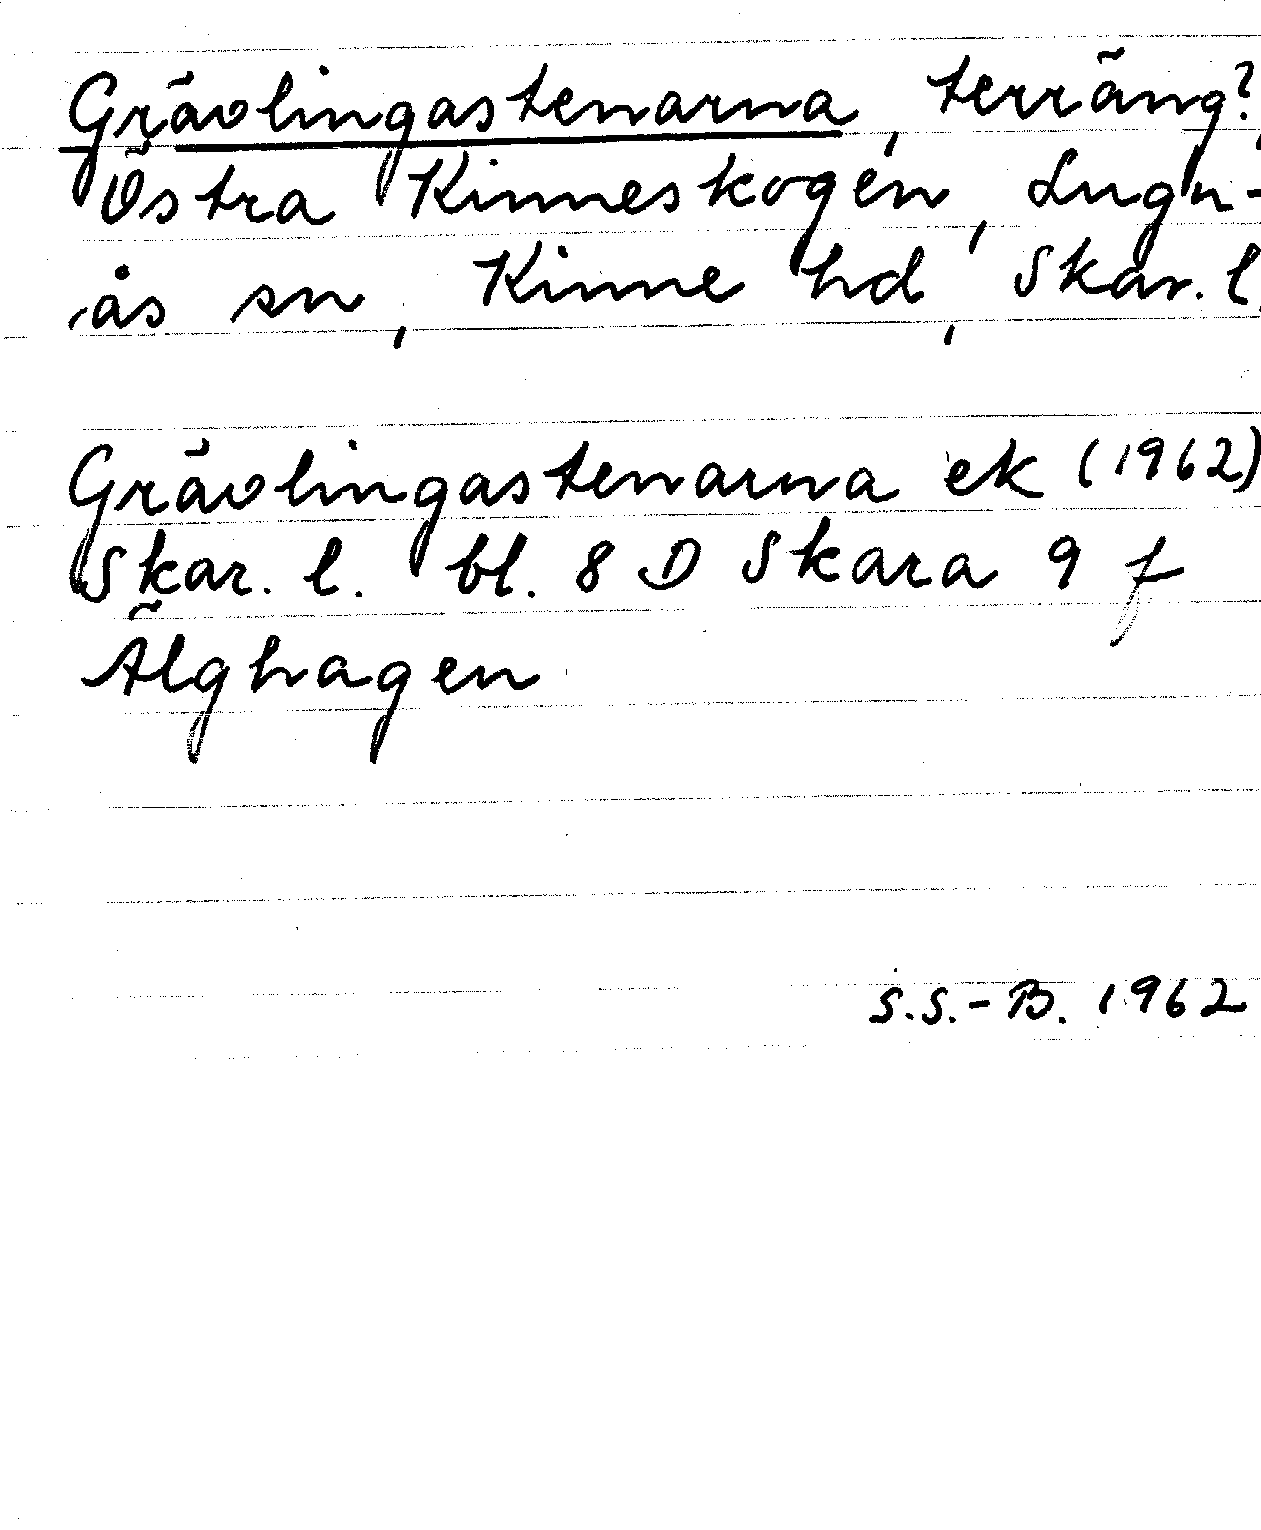 Grävlingastenarna, terräng?,
Östra Kinneskogen, Lugn-
ås sn, Kinne hd, Skar. l.
Grävlingastenarna ek (1962)
Skar. l. bl. 8 D Skara 9 f
Älghagen
S.S.-B. 1962